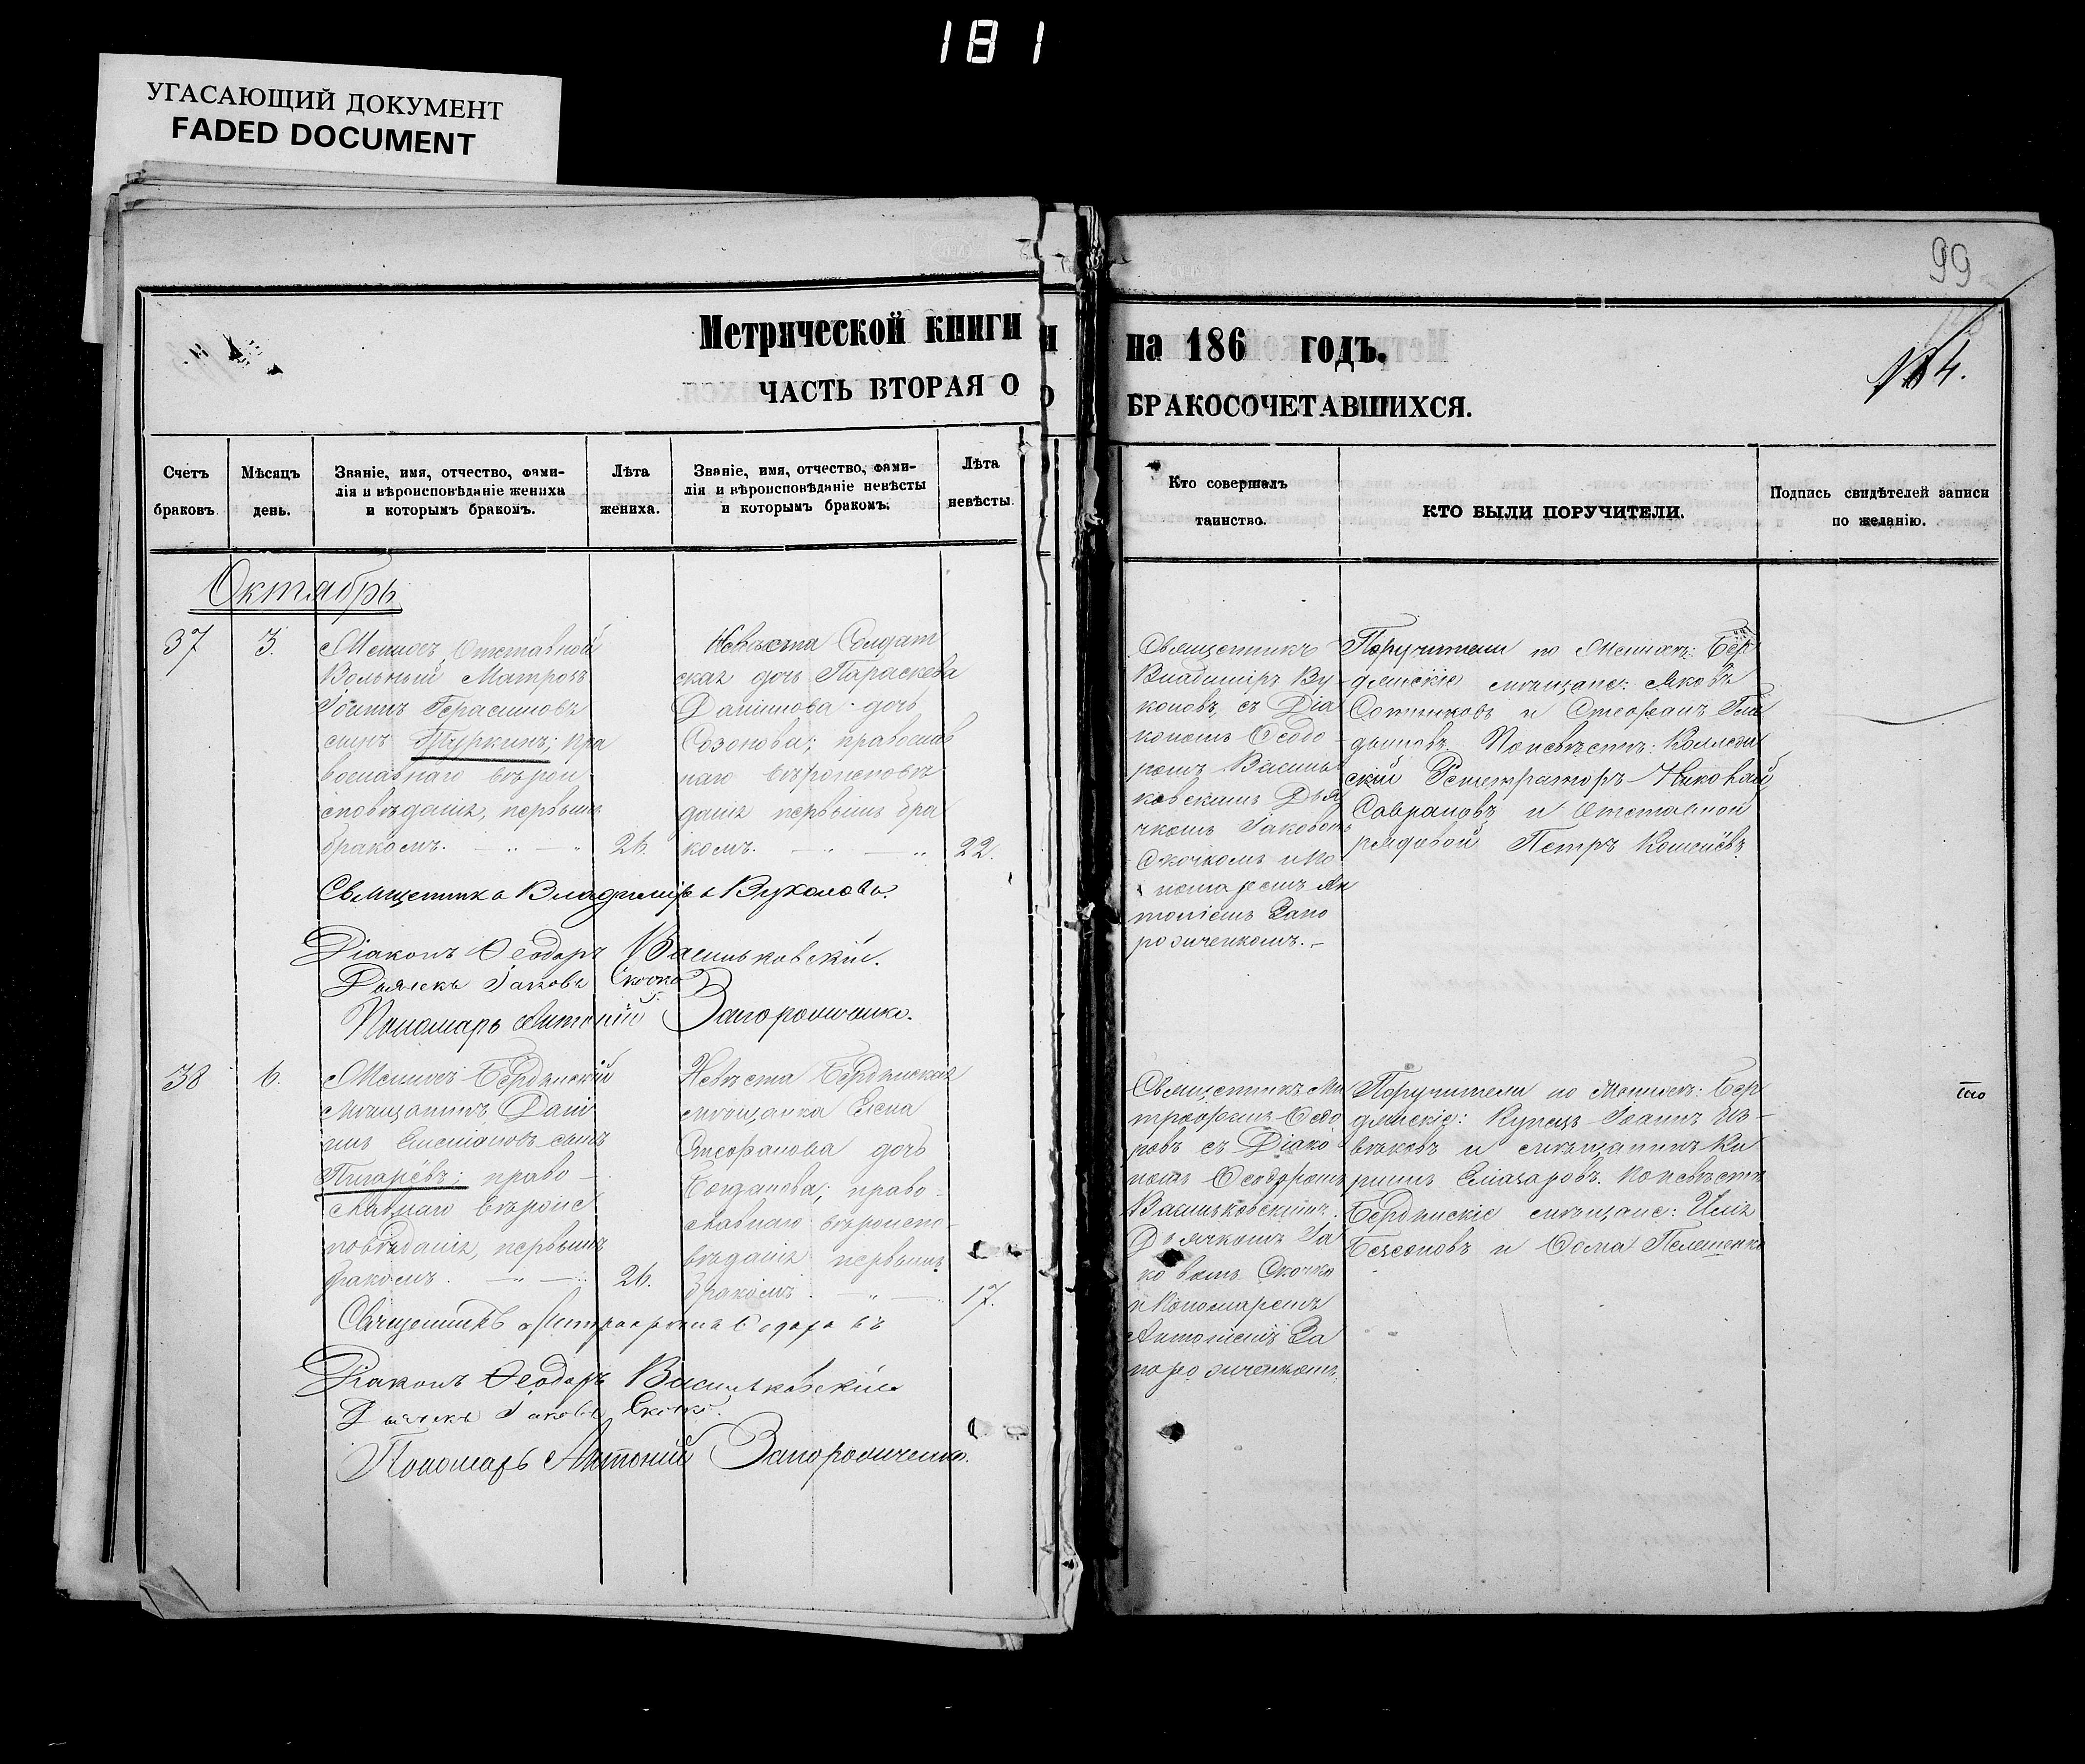 181
УГАСАЮЩИЙ ДОКУМЕНТ
FADED DOCUMENT
99
Метрической книги на 186 годъ.
ЧАСТЬ ВТОРАЯ О БРАКОСОЧЕТАВШИХСЯ.
Счетъ браковъ.
Мѣсяцъ день.
Званіе, имя, отчество, фами-
лія и вѣроисповѣданіе жениха
и которымъ бракомъ.
Лѣта жениха.
Званіе, имя, отчество, фами-
лія и вѣроисповѣданіе невѣсты
и которымъ бракомъ.
Лѣта невѣсты.
Кто совершалъ
таинство.
КТО БЫЛИ ПОРУЧИТЕЛИ.
Подпись свидѣтелей записи
по желанію.
Октябрь
37
3.
Женихъ Отставной
Вольный Матрозъ
Герасимовъ
сынъ Пуркинъ; пра
вославнаго вѣрои
сповѣданія, первымъ
бракомъ.
26.
Невѣста Солдат
ская дочь Параскева
Даніилова дочь
Созонова; православ
наго вѣроисповѣ
данія первымъ бра
комъ.
22.
Священникъ
Владиміръ Ву
коловъ, съ Діа
кономъ Ѳеодо
ромъ Василь
ковскимъ Дья
чкомъ Іаковомъ
Скочкомъ и По
номаремъ Ан
тоніемъ Запо
рожченкомъ.
Поручители по Женихѣ: Бер
дянскіе мѣщане: Яковъ
Сотниковъ и Стефанъ
По невѣстѣ: Коллеж
скій Регистраторъ Николай
Саврановъ и Отставной
рядовой Петръ
Священникъ Владиміръ Вуколовъ.
Діаконъ Ѳеодоръ Васильковскій.
Дьячекъ Іаковъ Скочко
Пономарь Антоній Запорожченко.
38
6.
Женихъ Бердянскій
мѣщанинъ Дані
илъ сынъ
Пигарёвъ; право
славнаго вѣроис
повѣданія, первымъ
бракомъ.
26.
Невѣста Бердянская
мѣщанка Елена
Стефанова дочь
Богданова; право
славнаго вѣроиспо
вѣданія первымъ
бракомъ.
17.
Священникъ Ми
трофанъ Ѳедо
ровъ съ Діако
номъ Ѳеодоромъ
Васильковскимъ
Дьячкомъ Іа
ковомъ Скочко
и Пономаремъ
Антоніемъ За
порожченкомъ.
Поручители по Женихѣ: Бер
дянскіе: Купецъ Іоаннъ Ив
и мѣщанинъ Ки
рилъ Елизаровъ. По невѣстѣ
Бердянскіе мѣщане: Илія
и Ѳома Пелешенко
Священникъ Митрофанъ Ѳедоровъ
Діаконъ Ѳеодоръ Васильковскій
Дьячекъ Іаковъ Скочко.
Пономарь Антоній Запорожченко.